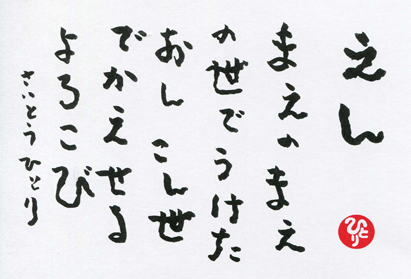 えん
まえのまえ
の世でうけた
おん こん世
でかえせる
よろこび
さいとうひとり
ひとり